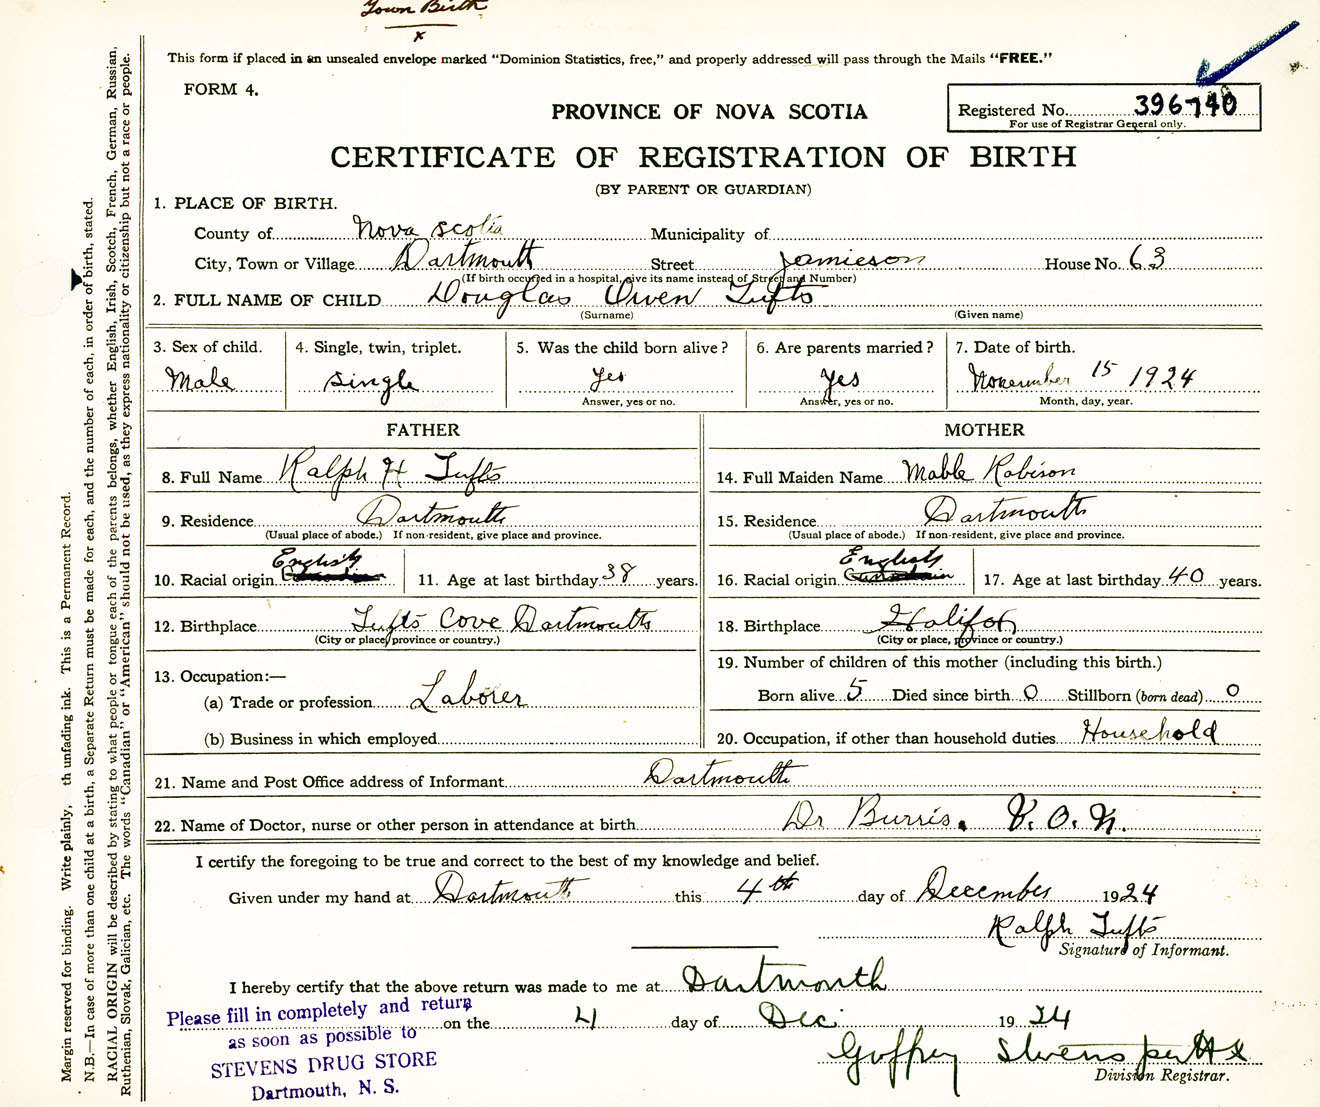 Town Birth
x
This form if placed in an unsealed envelope marked "Dominion Statistics, free," and properly addressed will pass through the Mails "FREE."
FORM 4.
PROVINCE OF NOVA SCOTIA
Registered No. 396740
For use of Registrar General only.
CERTIFICATE OF REGISTRATION OF BIRTH
(BY PARENT OR GUARDIAN)
1. PLACE OF BIRTH.
County of Nova Scotia Municipality of
City, Town or Village Dartmouth Street Jamieson House No. 63
(If birth occurred in a hospital, give its name instead of Street and Number)
2. FULL NAME OF CHILD Douglas Owen Tufts
(Surname) (Given name)
3. Sex of child. 4. Single, twin, triplet. 5. Was the child born alive? 6. Are parents married? 7. Date of birth.
Male single yes yes November 15 1924
Answer, yes or no. Answer, yes or no. Month, day, year.
FATHER MOTHER
8. Full Name Ralph H Tufts 14. Full Maiden Name Mable Robison
9. Residence Dartmouth 15. Residence Dartmouth
(Usual place of abode.) If non-resident, give place and province. (Usual place of abode.) If non-resident, give place and province.
English English
10. Racial origin Canadian 11. Age at last birthday 38 years. 16. Racial origin Canadian 17. Age at last birthday 40 years.
12. Birthplace Tufts Cove Dartmouth 18. Birthplace Halifax
(City or place, province or country.) (City or place, province or country.)
13. Occupation:— 19. Number of children of this mother (including this birth.)
(a) Trade or profession Laborer Born alive 5 Died since birth 0 Stillborn (born dead) 0
(b) Business in which employed 20. Occupation, if other than household duties Household
21. Name and Post Office address of Informant Dartmouth
22. Name of Doctor, nurse or other person in attendance at birth Dr Burris. V.O.N.
I certify the foregoing to be true and correct to the best of my knowledge and belief.
Given under my hand at Dartmouth this 4th day of December 1924
Ralph Tufts
Signature of Informant.
I hereby certify that the above return was made to me at Dartmouth
on the 4 day of Dec. 1924
Stevens per
Division Registrar.
Please fill in completely and return
as soon as possible to
STEVENS DRUG STORE
Dartmouth, N. S.
Margin reserved for binding. Write plainly, th unfading ink. This is a Permanent Record.
N.B.—In case of more than one child at a birth, a Separate Return must be made for each, and the number of each, in order of birth, stated.
RACIAL ORIGIN will be described by stating to what people or tongue each of the parents belongs, whether English, Irish, Scotch, French, German, Russian,
Ruthenian, Slovak, Galician, etc. The words "Canadian" or "American" should not be used, as they express nationality or citizenship but not a race or people.